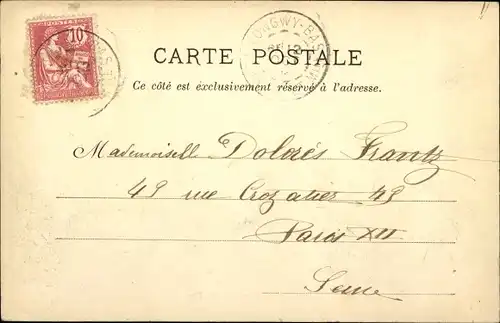 POSTES
10
LONGWY-BAS
CARTE POSTALE
Ce côté est exclusivement réservé à l'adresse.
Mademoiselle Dolorés Frantz
49 rue Crozatier 49
Paris XII
Seine